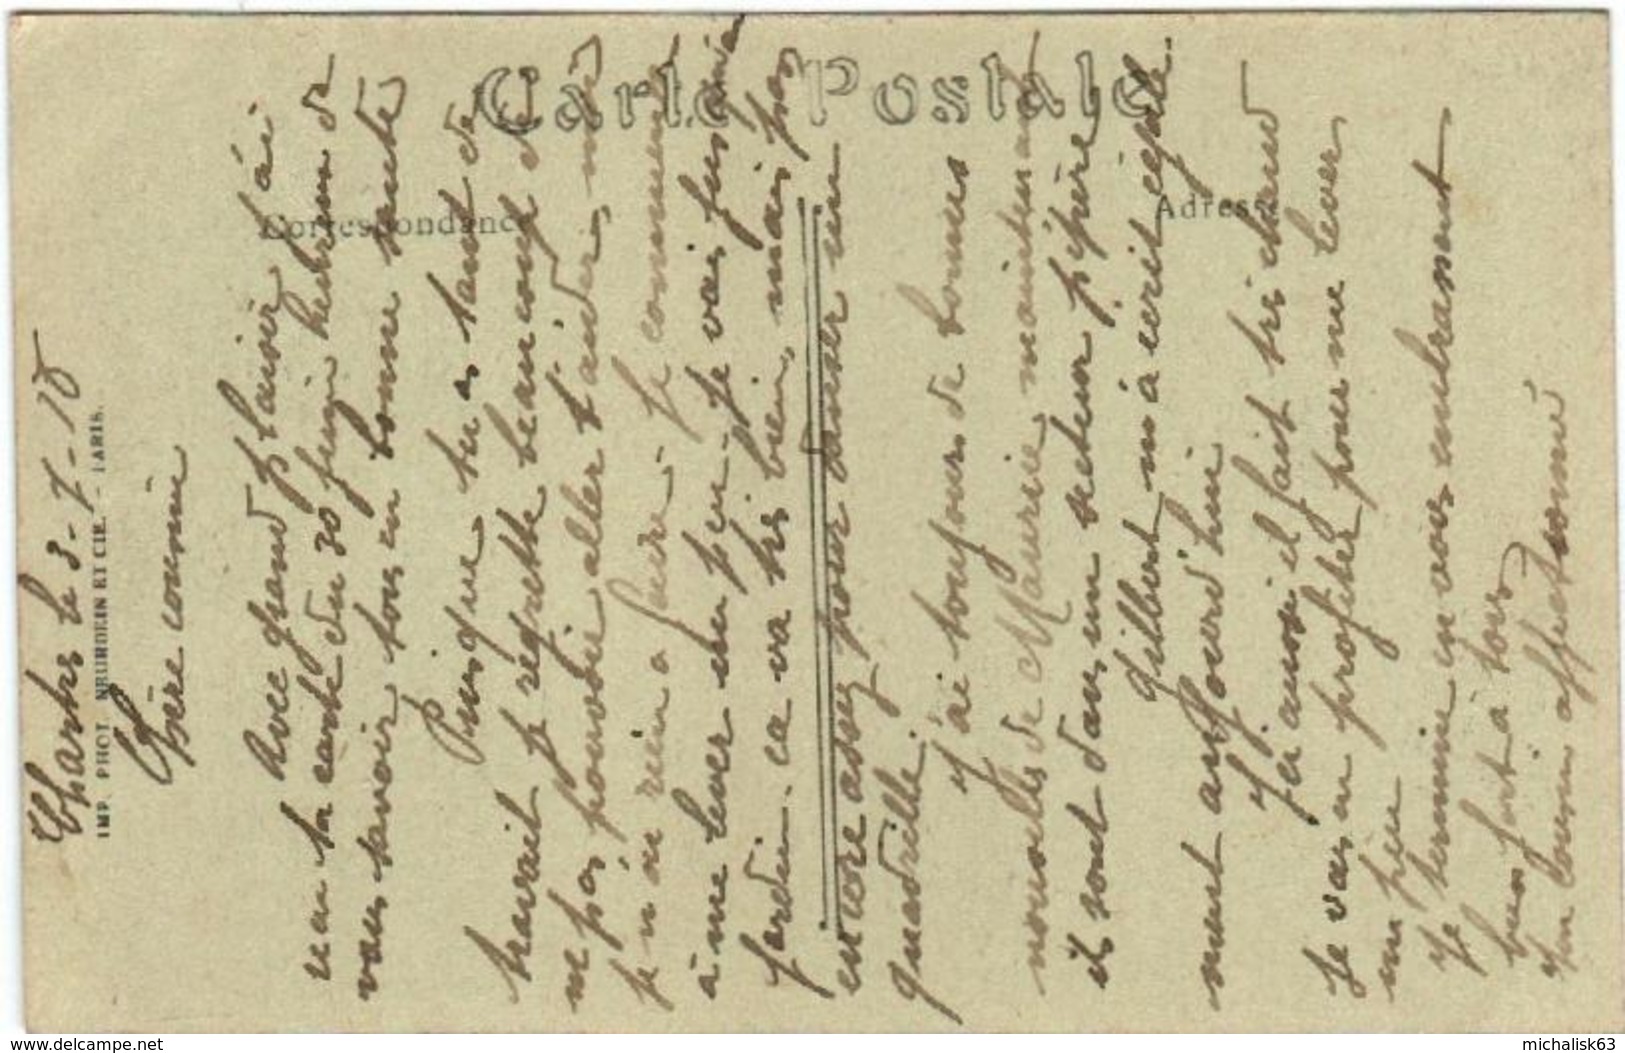 Chartres le 3-7-18
Chère cousine
Avec grand plaisir j'ai
reçu ta carte du 30 juin heureux de
vous savoir tous en bonne santé
Puisque tu as tant de
travail je regrette beaucoup de
ne pas pouvoir aller t'aider, moi
je n'ai rien a faire. Je commence
à me lever un peu. Je vais jusqu'au
jardin. ca va très bien, mais pas
encore assez pour danser un
quadrille.
J'ai toujours de bonnes
nouvelles de Maurice, maintenant
il sont dans un secteur pépère
Gilbert m'a ecrit egale
ment aujourd'hui
Ici aussi il fait très chaud
Je vais en profiter pour me lever
un peu
Je termine en vous embrassant
bien fort à tous
Ton cousin affectionné
Carte Postale
Correspondance
Adresse
IMP. PHOT. NEURDEIN ET CIE. - PARIS.
www.delcampe.net
michalisk63